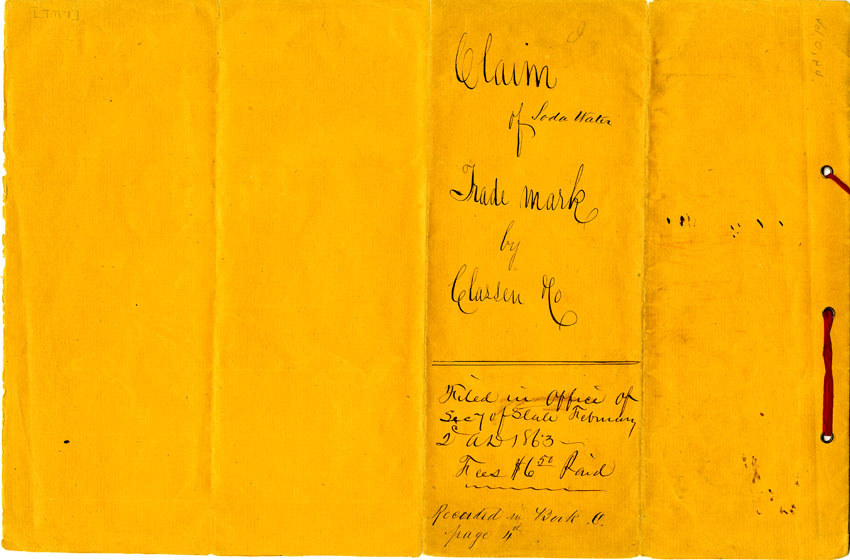 Claim
of Soda Water
Trade mark
by
Classen &Co
Filed in Office of
Secy of State February
2d AD 1863
Fees $6 50 Paid
Recorded in Book C.
page 4